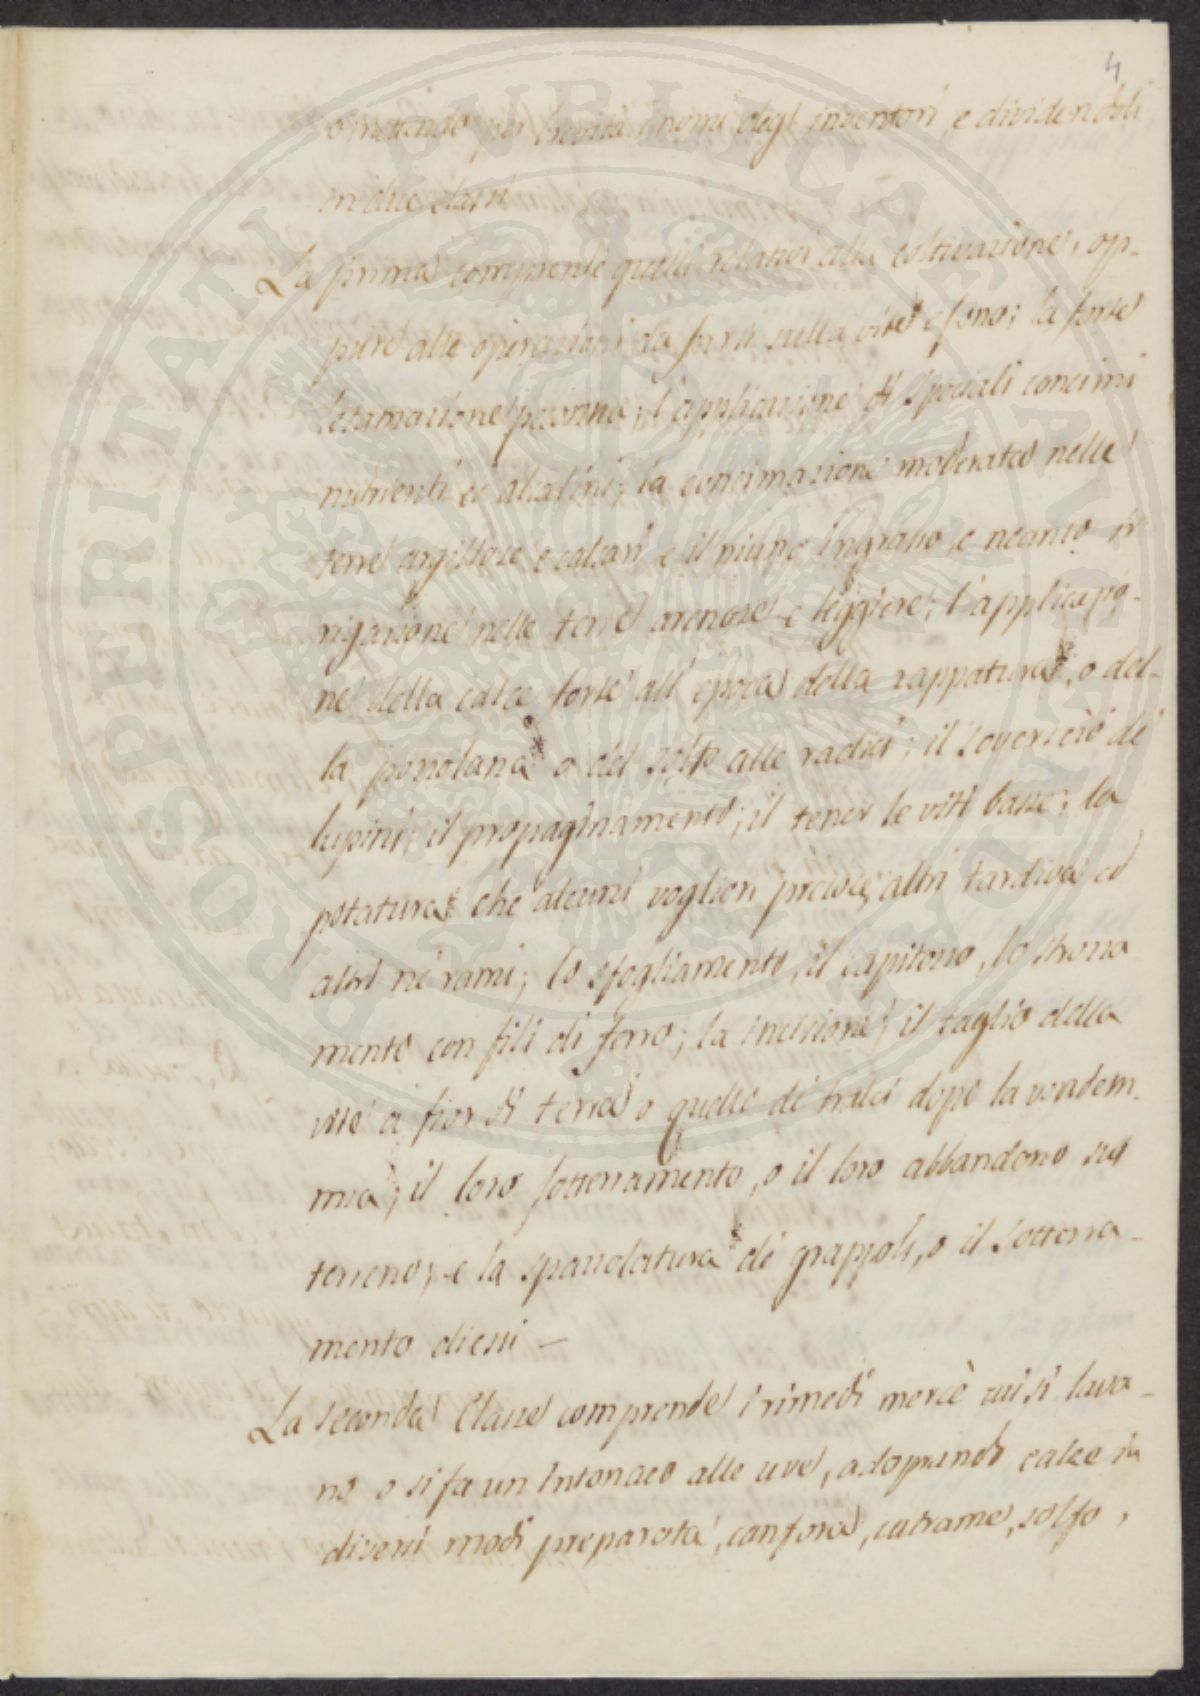 4
omettendo per brevità i nomi degl' inventori, e dividendoli
in due classi
La prima comprende quelli relativi alla coltivazione, op-
pure alle operazioni da farsi sulla vite e sono; la forte
letamazione pecorina; l'applicazione di speciali concimi
nutrienti ed alcalini; la concimazione moderata nelle
terre argillose e calcari e il niuno ingrasso e neanco ir
rigazione nelle terre arenose e leggiere; l'applicazio-
ne della calce forse all' epoca della zappatura, o del-
la pozzolana o del solfo alle radici; il sovescio di
lupini; il propaginamento; il tener le viti basse; la
potatura che alcuni voglion precoce, altri tardiva ed
altri ne' rami; lo sfogliamento, il capitozzo, lo strozza
mento con fili di ferro; la incisione; il taglio della
vite a fior di terra o quello de' tralci dopo la vendem-
mia; il loro sotterramento, o il loro abbandono sul
terreno; e la spampanatura de' grappoli, o il sotterra-
mento di essi —
La seconda Classe comprende i rimedi mercè cui si lava-
no o si fa un intonaco alle uve, adoprando calce in
diversi modi preparata, canfora, catrame, solfo,
PROSPERITATI PVBLICAE AVGENDAE